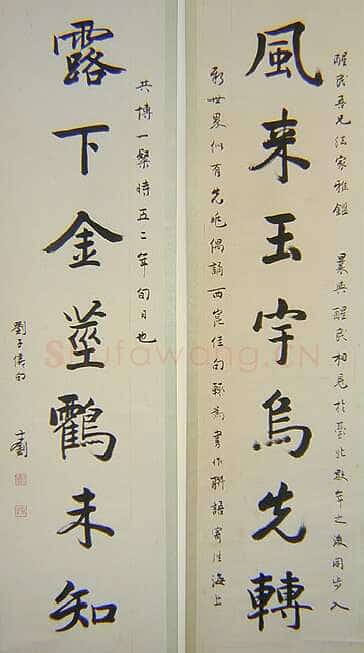 醒民吾兄法家雅鑑　曩與醒民相見於臺北數年之後同步入
風来玉宇烏先轉
新世界似有先兆偶誦西崑佳句輒為書作聯語寄往海上
共博一粲時五二年旬日也
露下金莖鸖未知
劉子儀句
Shufawang.CN